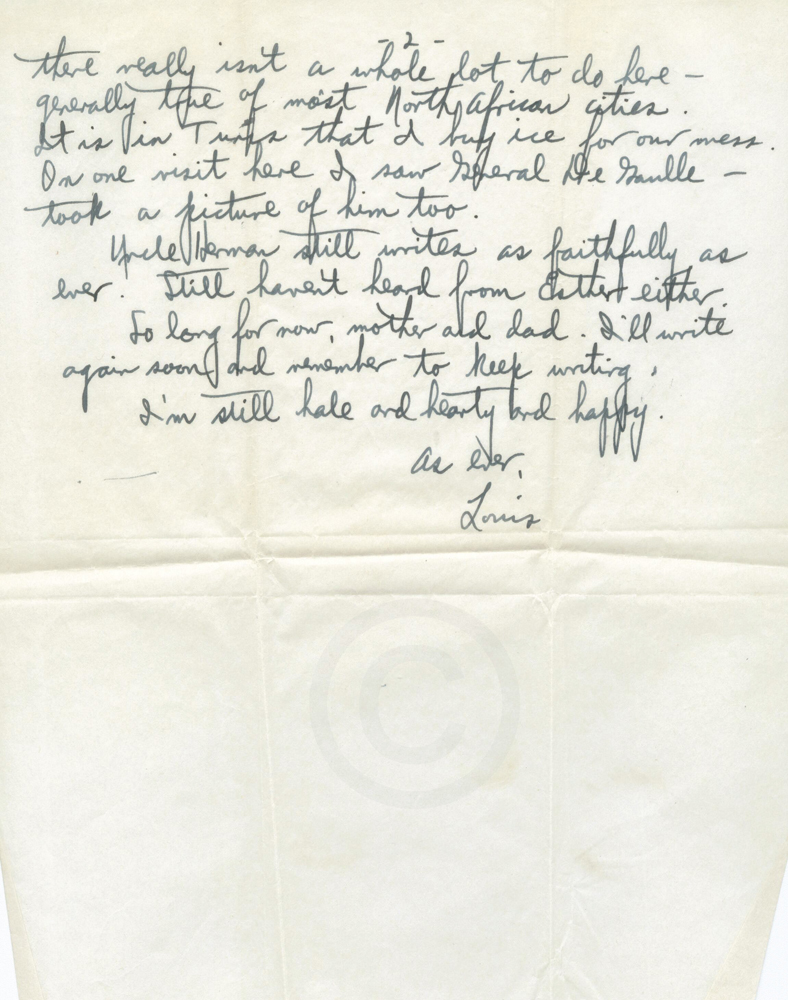 - 2 -
there really isn't a whole lot to do here -
generally true of most North African cities.
It is in Tunis that I buy ice for our mess.
On one visit here I saw General De Gaulle -
took a picture of him too.
Uncle Herman still writes as faithfully as
ever. Still haven't heard from Esther either.
So long for now, mother and dad. I'll write
again soon and remember to keep writing.
I'm still hale and hearty and happy.
As ever,
Louis
©